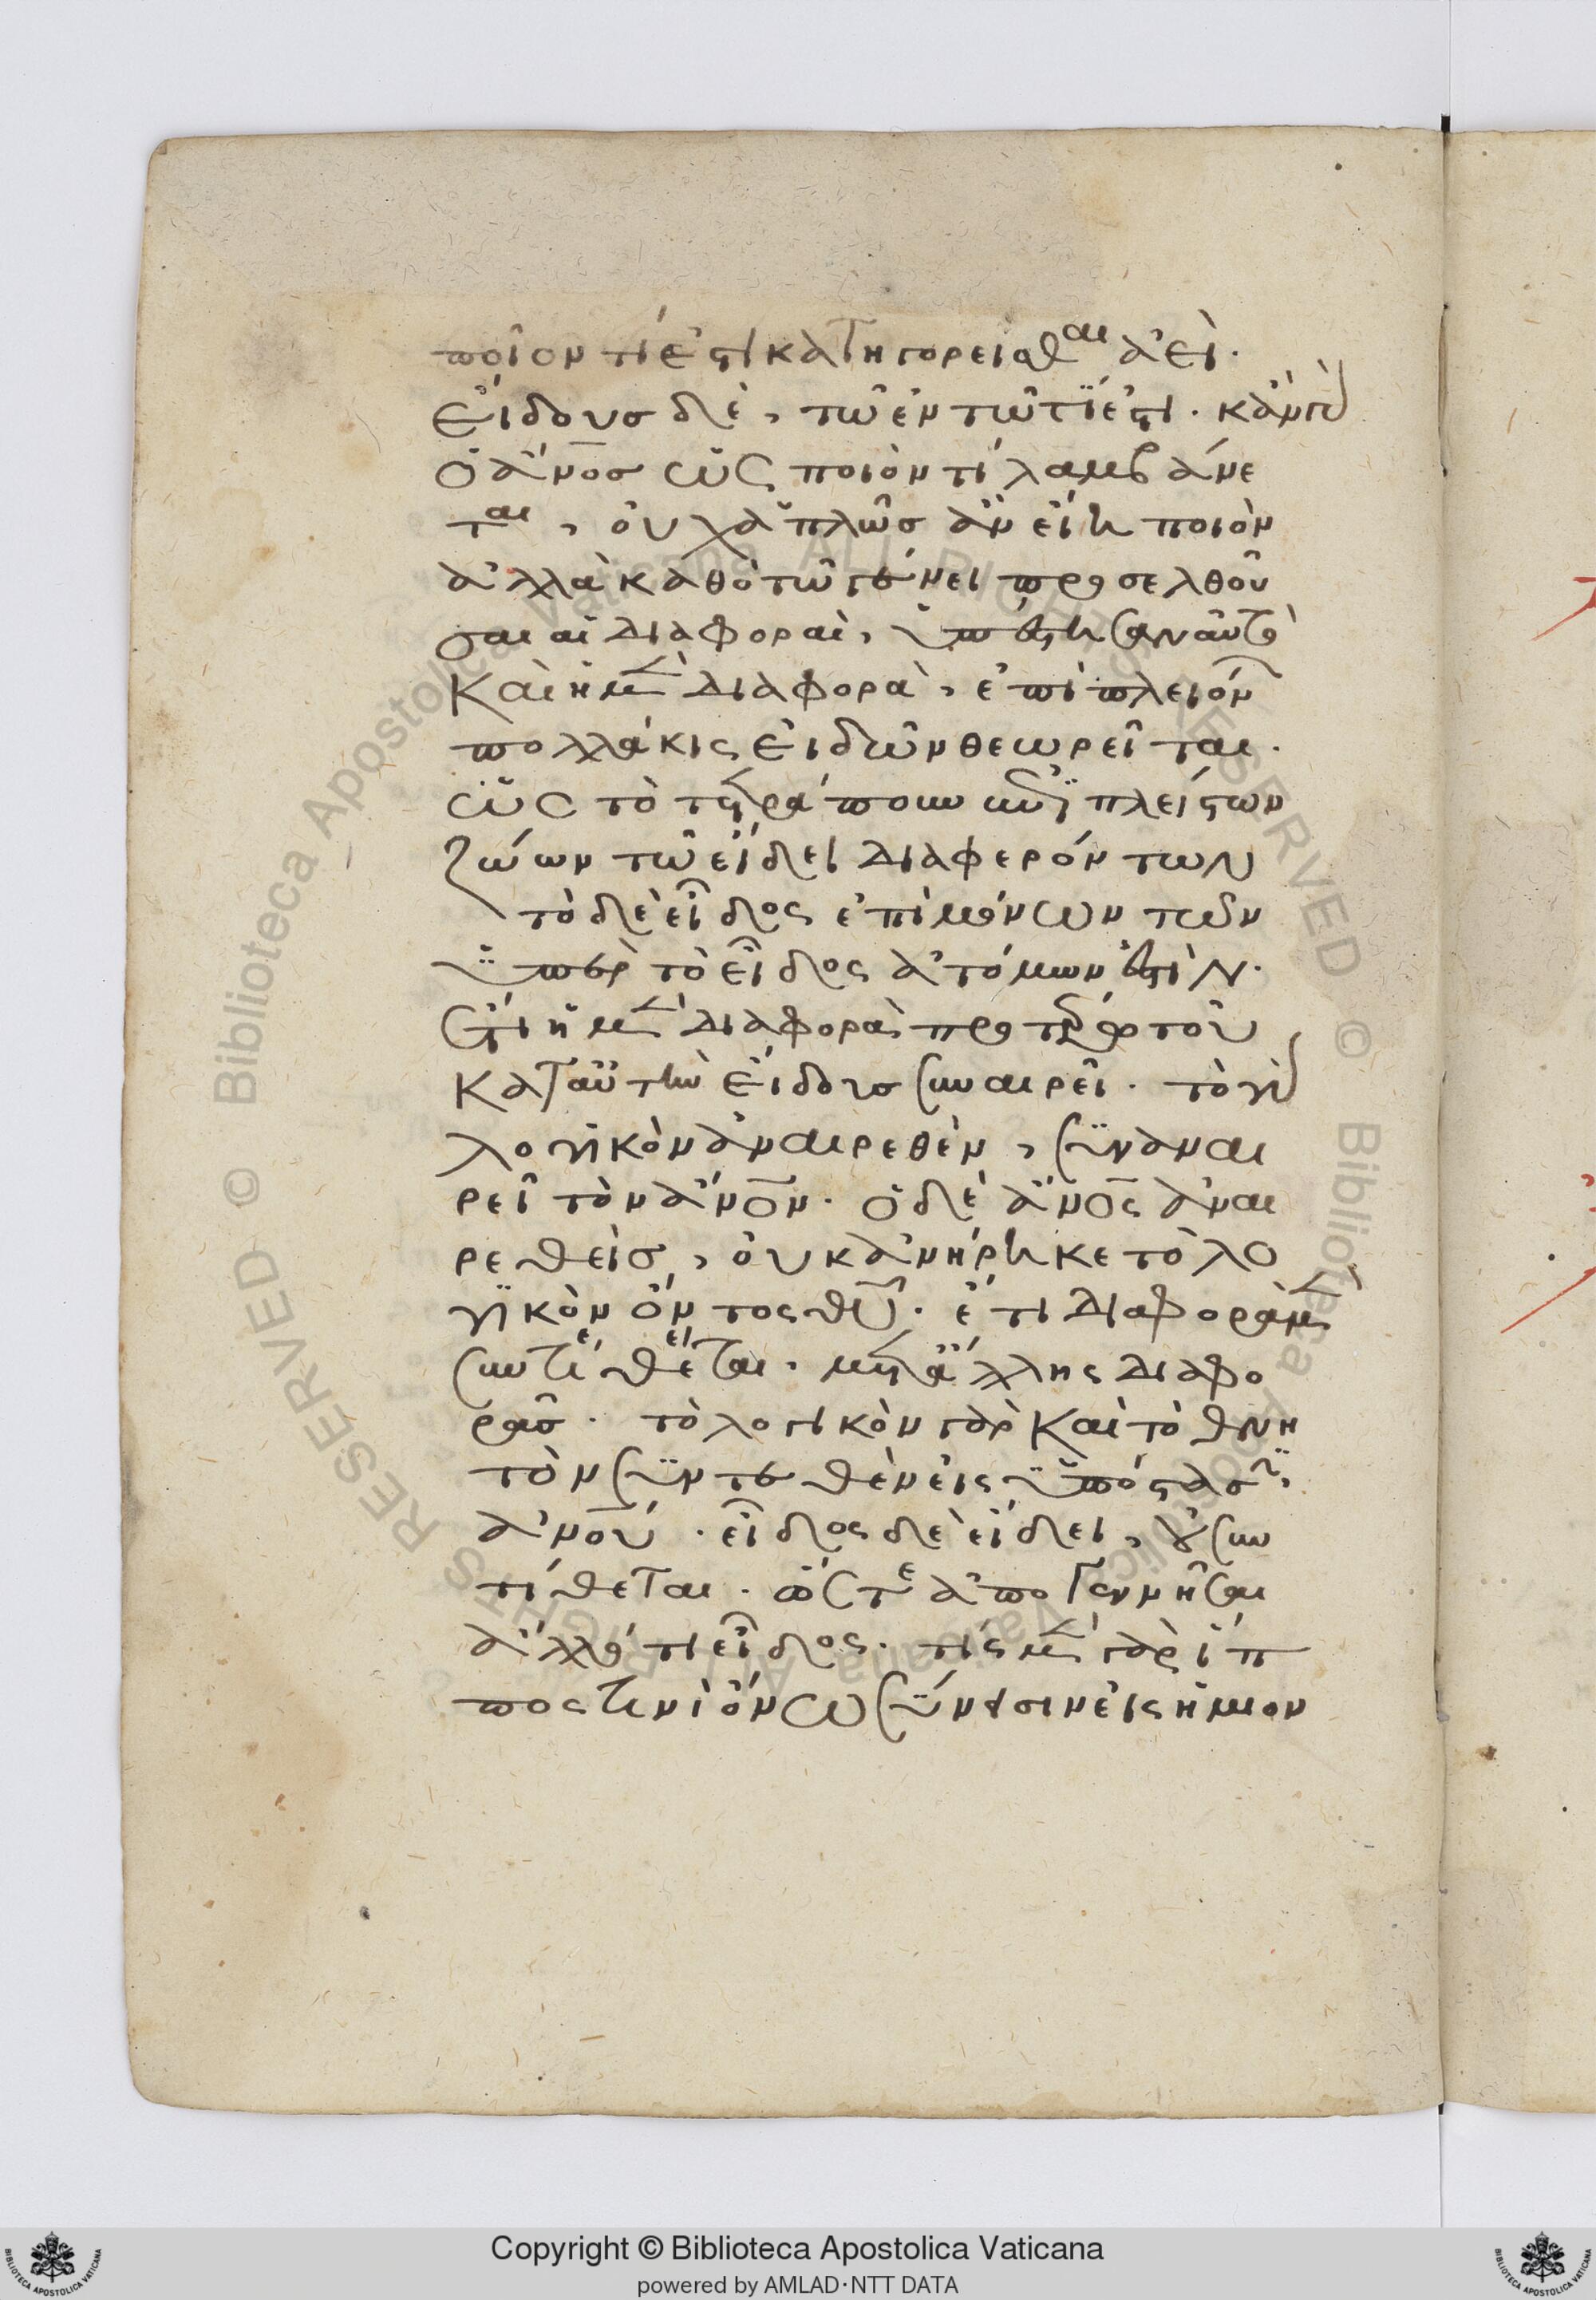 ποῖον τί ἐστι κατηγορεῖσθαι ἀεί.
εἴδους δὲ, τῶ ἐν τῶ τί ἐστι. κἂν γὰρ
ὁ ἄνος ὡς ποιόν τι λαμβάνε
ται, οὐχ ἁπλῶς ἂν εἴη ποιὸν
ἀλλὰ καθὸ τῶ γένει προσελθοῦ
σαι αἱ διαφοραὶ, ὑπέστησαν αὐτό
καὶ ἡ μὲν διαφορὰ, ἐπὶ πλειόνων
πολλάκις εἰδῶν θεωρεῖται.
ὡς τὸ τετράπουν ἐπὶ πλείστων
ζώων τῶ εἴδει διαφερόντων
τὸ δὲ εἶδος ἐπὶ μόνων τῶν
ὑπὸ τὸ εἶδος ἀτόμων ἐστίν.
ἔτι ἡ μὲν διαφορὰ προτέρα τοῦ
κατ αὐτὴν εἴδους συναιρεῖ. τὸ γὰρ
λογικὸν ἀναιρεθὲν, συναναι
ρεῖ τὸν ἄνον. ὁ δὲ ἄνος ἀναι
ρεθεὶς, οὐκ ἀνήρηκε τὸ λο
γικὸν ὄντος θυ. ἔτι διαφορὰ μὲν
συντίθεται μετὰ ἄλλης διαφο
ρᾶς. τὸ λογικὸν γὰρ καὶ τὸ θνη
τὸν συνετέθη εἰς ὑπόστασιν
ἀνου. εἶδος δὲ εἴδει, οὐ συν
τίθεται. ὥστε ἀπογεννῆσαι
ἄλλό τι εἶδος. τὶς μὲν γὰρ ἵπ
πος τινὶ ὄνω σύνεισιν εἰς ἡμιόν